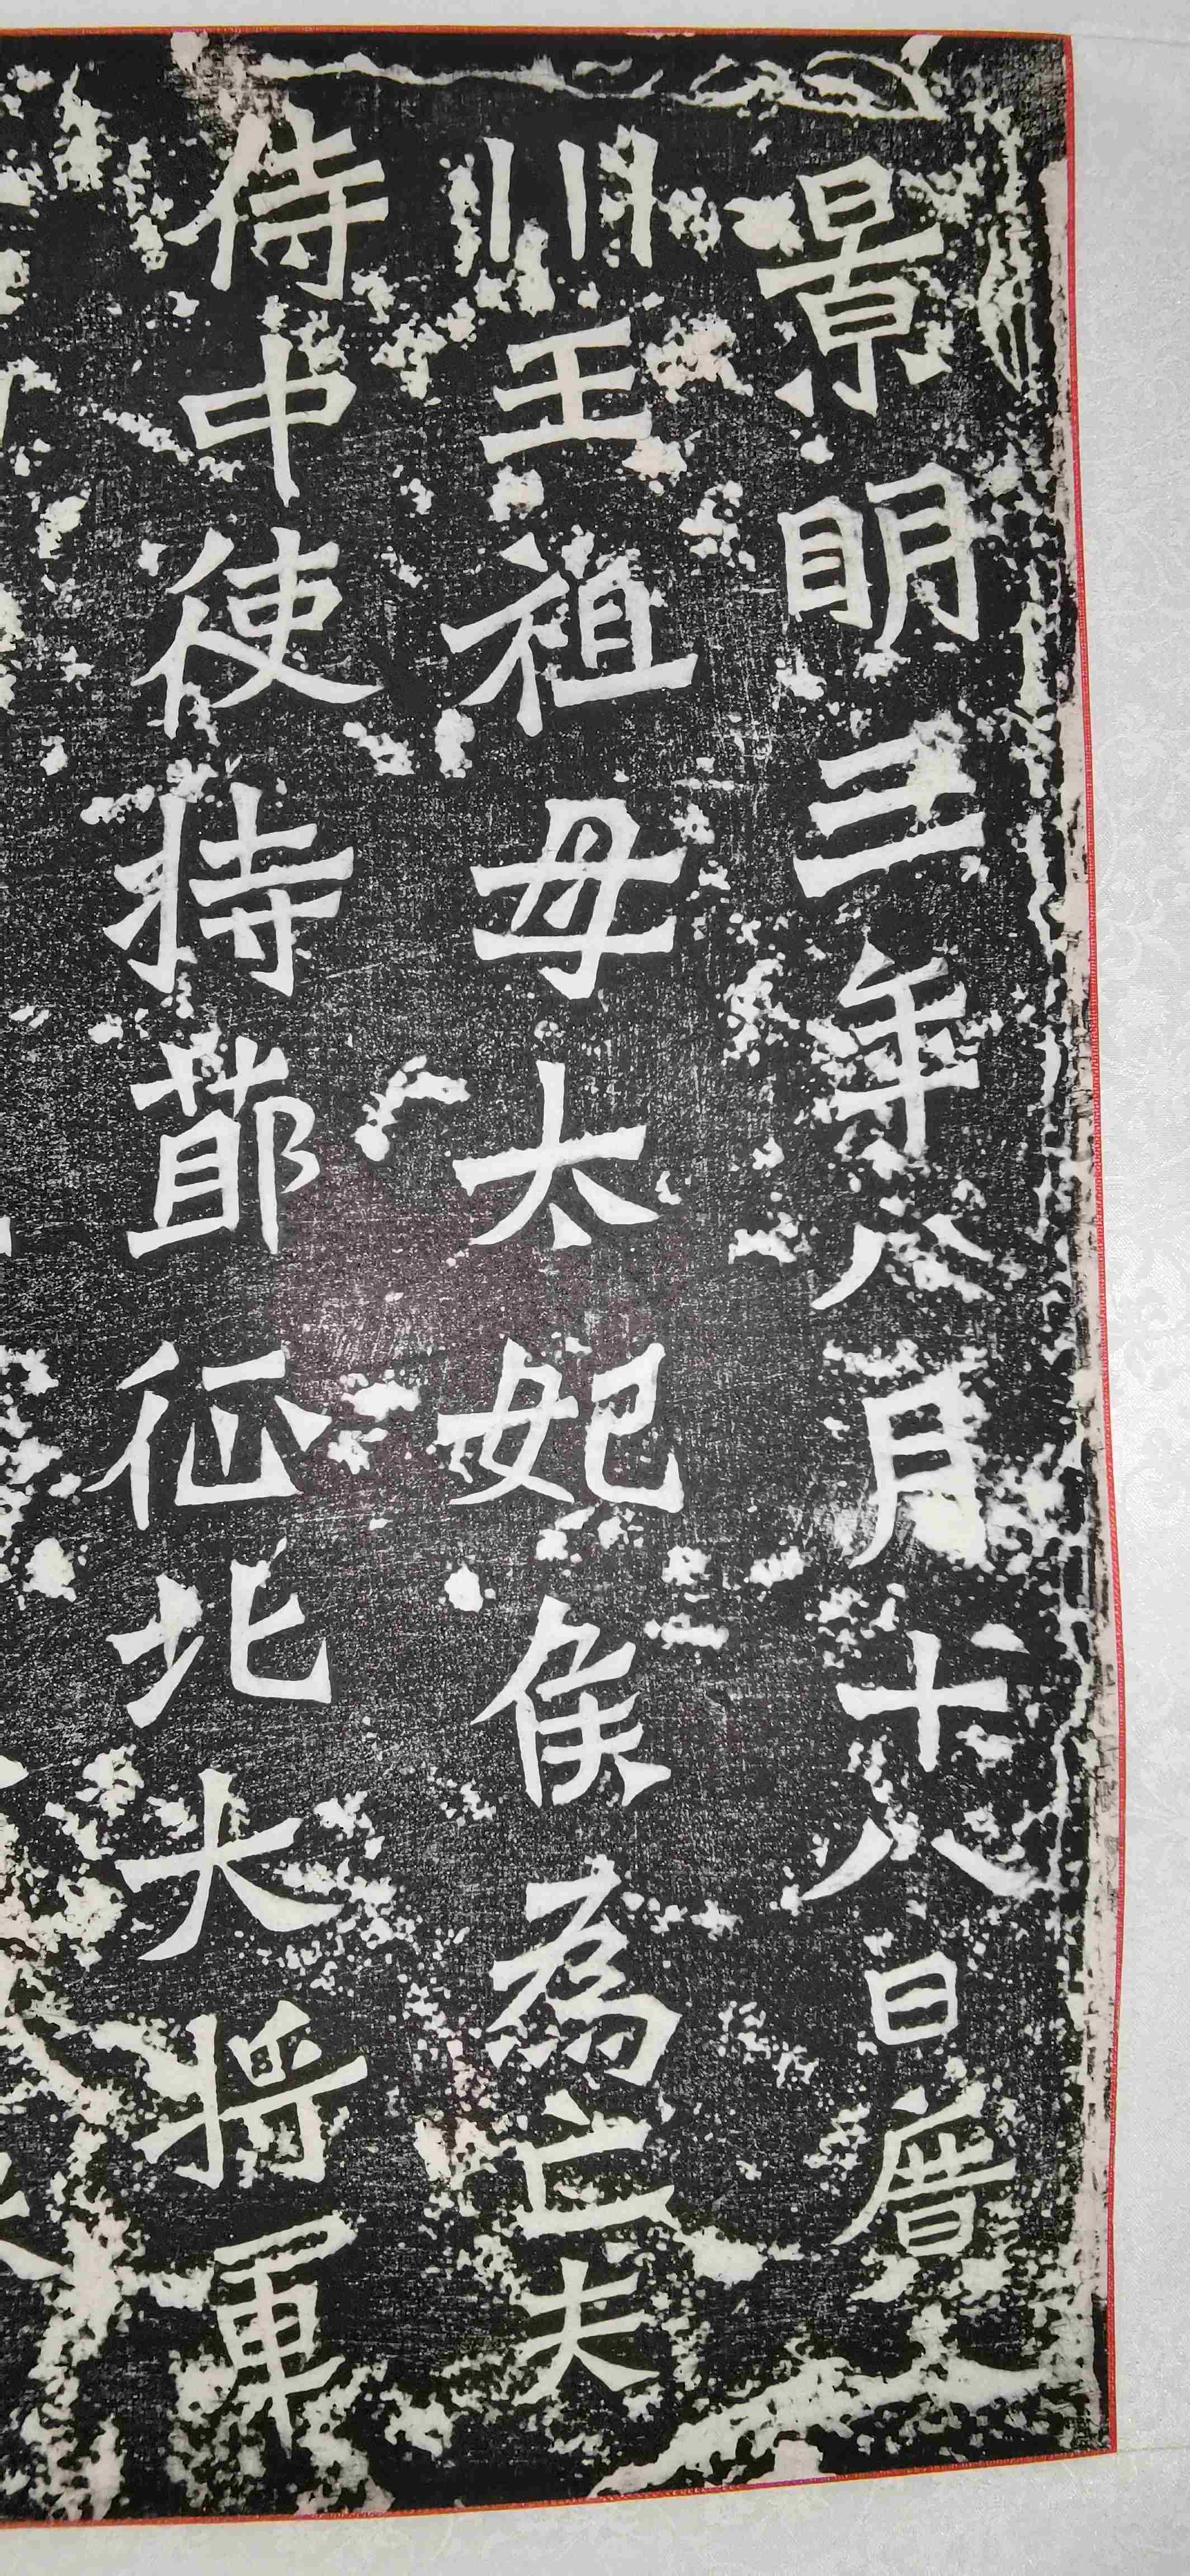 景明三年八月十八日廣
川王祖母太妃侯為亡夫
侍中使持節征北大將軍